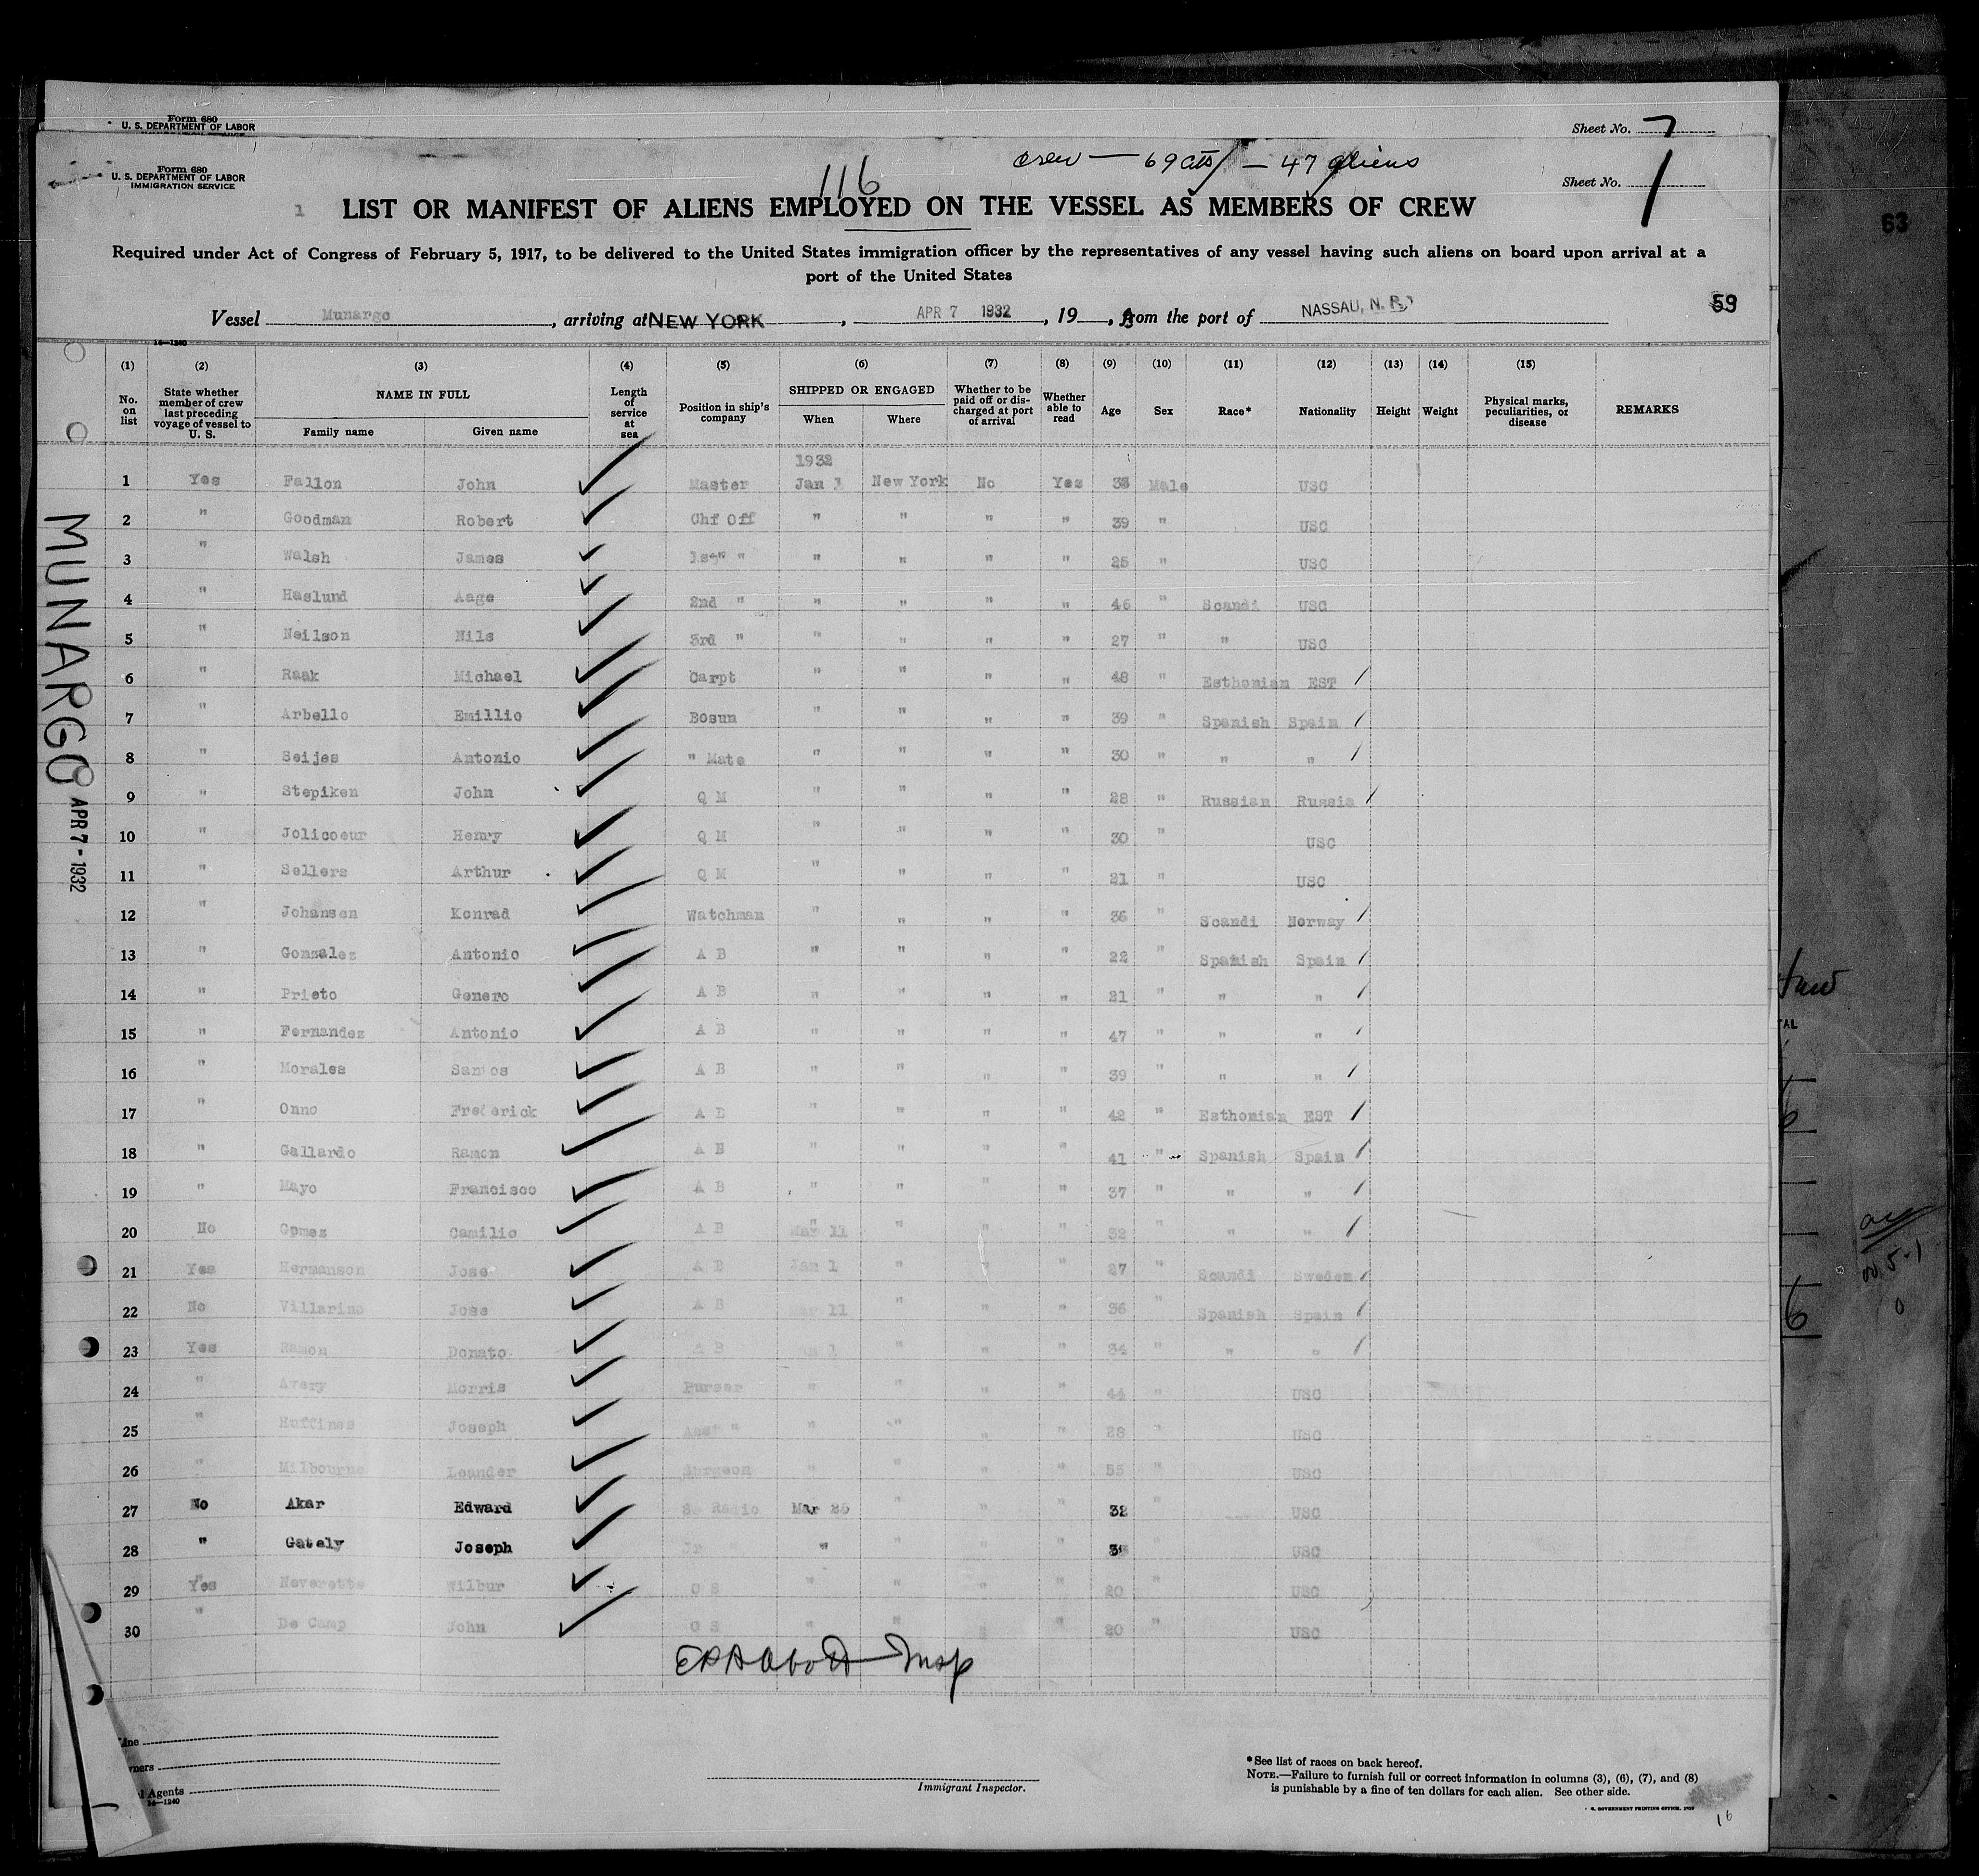 Form 680
U. S. DEPARTMENT OF LABOR
Sheet No. 7
Form 680
U. S. DEPARTMENT OF LABOR
IMMIGRATION SERVICE
116
crew — 69 — 47 aliens
Sheet No. 1
63
1 LIST OR MANIFEST OF ALIENS EMPLOYED ON THE VESSEL AS MEMBERS OF CREW
Required under Act of Congress of February 5, 1917, to be delivered to the United States immigration officer by the representatives of any vessel having such aliens on board upon arrival at a
port of the United States
59
Vessel Munargo, arriving at NEW YORK, APR 7 1932, 19, from the port of NASSAU, N. P.
16—1240
(1) (2) (3) (4) (5) (6) (7) (8) (9) (10) (11) (12) (13) (14) (15)
No. on list
State whether member of crew last preceding voyage of vessel to U. S.
NAME IN FULL
Family name Given name
Length of service at sea
Position in ship's company
SHIPPED OR ENGAGED
When Where
Whether to be paid off or discharged at port of arrival
Whether able to read
Age Sex Race* Nationality Height Weight
Physical marks, peculiarities, or disease
REMARKS
1932
1 Yes Fallon John Master Jan 1 New York No Yes Male USC
2 " Goodman Robert Chf Off " " " " 39 " USC
3 " Walsh James 1st " " " " " 25 " USC
4 " Haslund Aage 2nd " " " " " 46 " Scandi USC
5 " Neilson Nils 3rd " " " " " 27 " " USC
6 " Raak Michael Carpt " " " " 48 " Esthonian EST
7 " Arbello Emillio Bosun " " " " 39 " Spanish Spain
8 " Seijes Antonio " Mate " " " " 30 " " "
9 " Stepiken John Q M " " " " 28 " Russian Russia
10 " Jolicoeur Henry Q M " " " " 30 " USC
11 " Sellers Arthur Q M " " " " 21 " USC
12 " Johansen Konrad Watchman " " " " 36 " Scandi Norway
13 " Gonzales Antonio A B " " " " 22 " Spanish Spain
14 " Prieto Genero A B " " " " 21 " " "
15 " Fernandez Antonio A B " " " " 47 " " "
16 " Morales Santos A B " " " " 39 " " "
17 " Onno Frederick A B " " " " 42 " Esthonian EST
18 " Gallardo Ramon A B " " " " 41 " Spanish Spain
19 " Mayo Francisco A B " " " " 37 " " "
20 No Gomez Camilio A B Mar 11 " " " 32 " " "
21 Yes Hermanson Jose A B Jan 1 " " " 27 " Scandi Sweden
22 No Villarino Jose A B Mar 11 " " " 36 " Spanish Spain
23 Yes Ramon Donato A B Jan 1 " " " 34 " " "
24 " Avery Morris Purser " " " " 44 " USC
25 " Huffines Joseph Asst " " " " " 28 " USC
26 " Milbourne Leander Surgeon " " " " 55 " USC
27 No Akar Edward Radio Mar 26 " " " 32 " USC
28 " Gately Joseph Jr " " " " " USC
29 Yes Neverette Wilbur O S " " " " 20 " USC
30 " De Camp John O S " " " " 20 " USC
MUNARGO
APR 7 - 1932
E A Abbott Insp
Immigrant Inspector.
Agents
16—1240
*See list of races on back hereof.
NOTE.—Failure to furnish full or correct information in columns (3), (6), (7), and (8)
is punishable by a fine of ten dollars for each alien. See other side.
GOVERNMENT PRINTING OFFICE
16